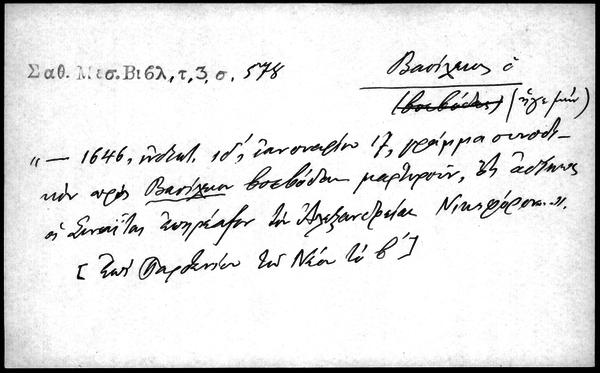 Σαθ. Μεσ. Βιβλ, τ, 3, σ. 578
Βασίλειος ὁ
(βοεβόδας) (ἡγεμών)
"— 1646, ἰνδικτ. ιδ', ἰανουαρίου 17, γράμμα συνοδι-
κὸν πρὸς Βασίλειον βοεβόδαν μαρτυροῦν, ὅτι ἀδίκως
οἱ Σιναΐται ἐπηρέαζον τὸν Ἀλεξανδρείας Νικηφόρον...".
[Ἐπὶ Παρθενίου τοῦ Νέου τὸ β']